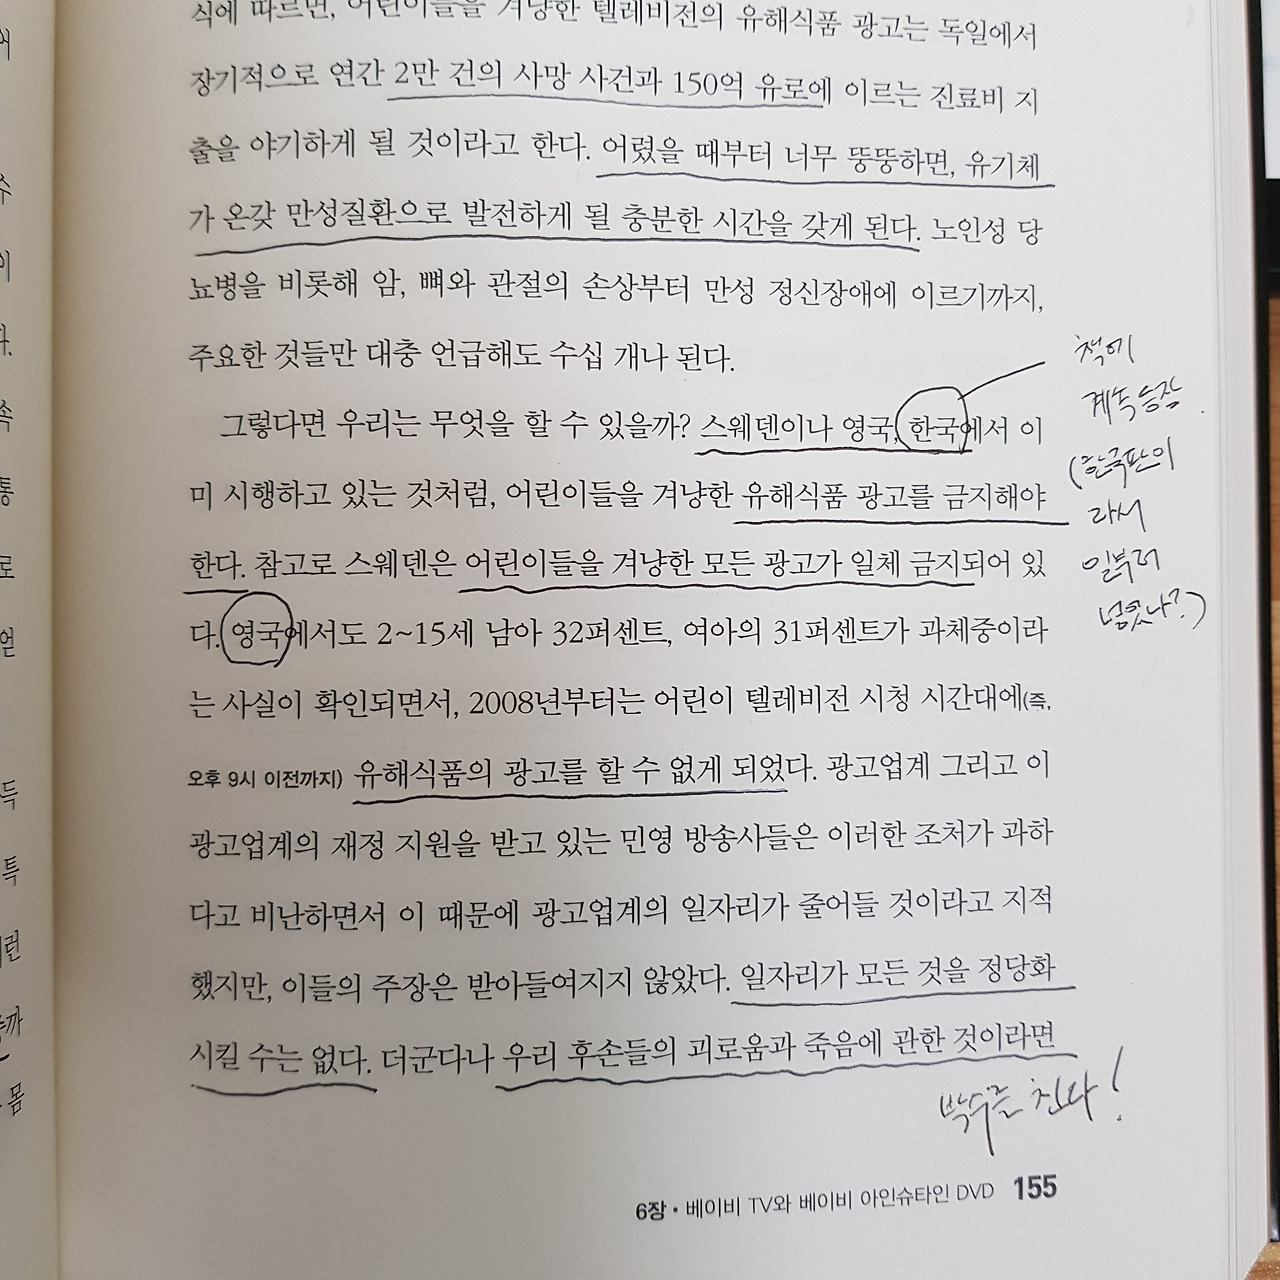 식에 따르면, 어린이들을 겨냥한 텔레비전의 유해식품 광고는 독일에서
장기적으로 연간 2만 건의 사망 사건과 150억 유로에 이르는 진료비 지
출을 야기하게 될 것이라고 한다. 어렸을 때부터 너무 뚱뚱하면, 유기체
가 온갖 만성질환으로 발전하게 될 충분한 시간을 갖게 된다. 노인성 당
뇨병을 비롯해 암, 뼈와 관절의 손상부터 만성 정신장애에 이르기까지,
주요한 것들만 대충 언급해도 수십 개나 된다.
그렇다면 우리는 무엇을 할 수 있을까? 스웨덴이나 영국, 한국에서 이
미 시행하고 있는 것처럼, 어린이들을 겨냥한 유해식품 광고를 금지해야
한다. 참고로 스웨덴은 어린이들을 겨냥한 모든 광고가 일체 금지되어 있
다. 영국에서도 2~15세 남아 32퍼센트, 여아의 31퍼센트가 과체중이라
는 사실이 확인되면서, 2008년부터는 어린이 텔레비전 시청 시간대에(즉,
오후 9시 이전까지) 유해식품의 광고를 할 수 없게 되었다. 광고업계 그리고 이
광고업계의 재정 지원을 받고 있는 민영 방송사들은 이러한 조처가 과하
다고 비난하면서 이 때문에 광고업계의 일자리가 줄어들 것이라고 지적
했지만, 이들의 주장은 받아들여지지 않았다. 일자리가 모든 것을 정당화
시킬 수는 없다. 더군다나 우리 후손들의 괴로움과 죽음에 관한 것이라면
책에
계속 등장
(한국판이
라서
일부러
넣었나?)
박수를 친다!
6장 · 베이비 TV와 베이비 아인슈타인 DVD 155